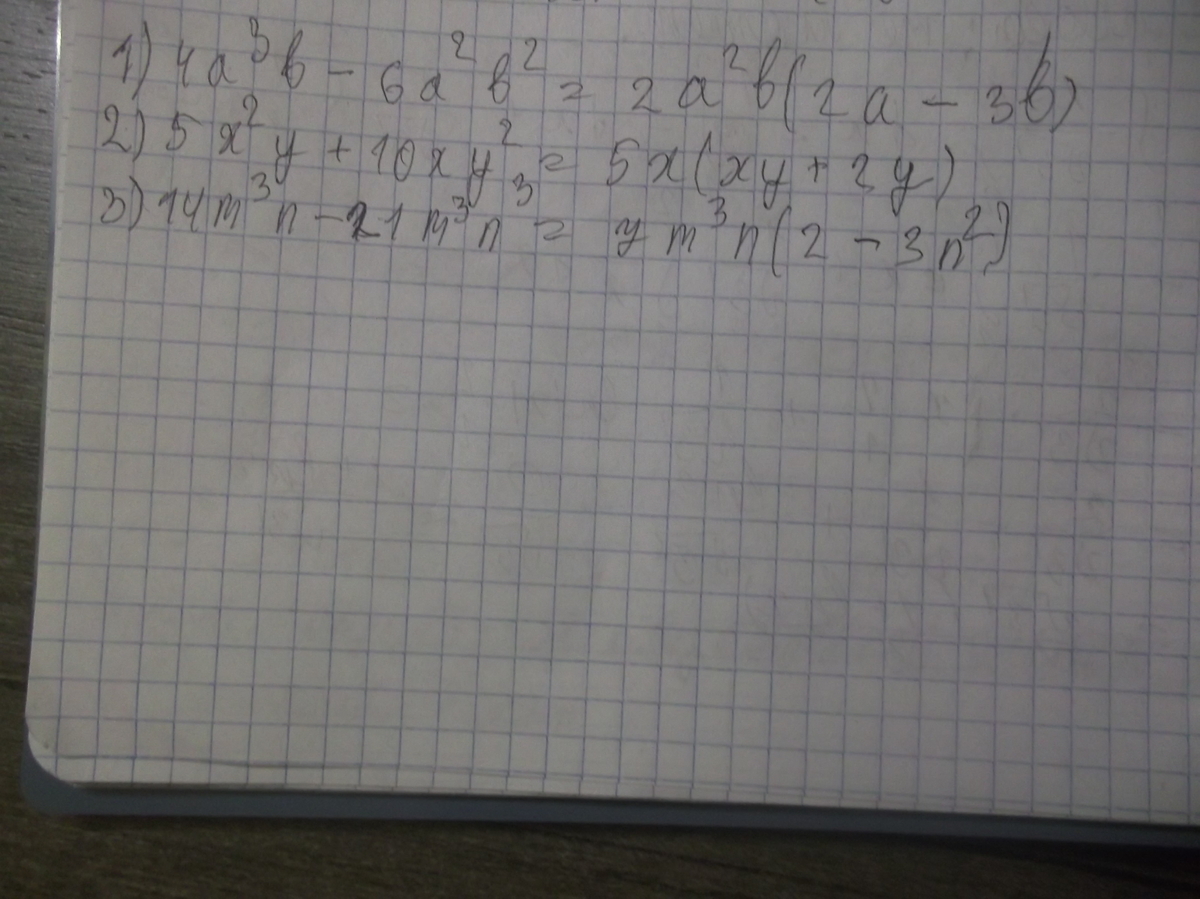 1) 4a³b - 6a²b² = 2a²b(2a - 3b)
2) 5x²y + 10xy² = 5x(xy + 2y)
3) 14m³n - 21m³n³ = 7m³n(2 - 3n²)